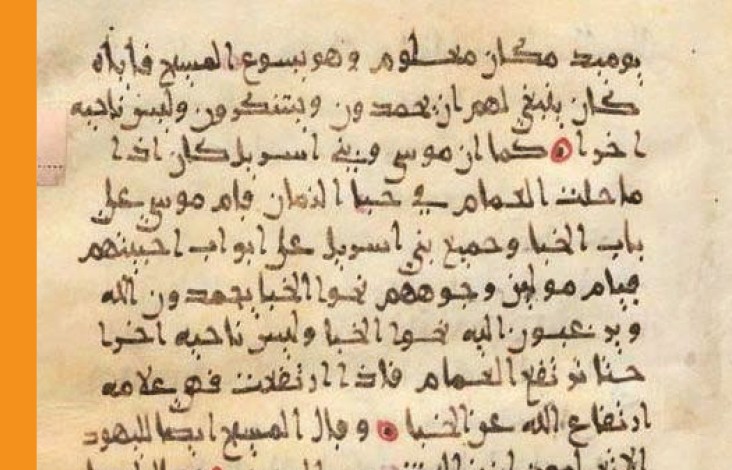 يوميد مكان معلوم وهو يسوع المسيح فاياه
كان ينبغي لهم ان يحمدون ويشكرون وليس ناحيه
اخرا كما ان موسى وبني اسريل كان اذا
ما حلت الغمام في خبا الزمان قام موسى على
باب الخبا وجميع بني اسريل على ابواب اخبيتهم
قيام مولين وجوههم نحوا الخبا يحمدون الله
ويرغبون اليه نحوا الخبا وليس ناحيه اخرا
حتا ترتفع الغمام فاذا ارتفعت فهو علامه
ارتفاع الله عن الخبا وقال المسيح ايضا لليهود